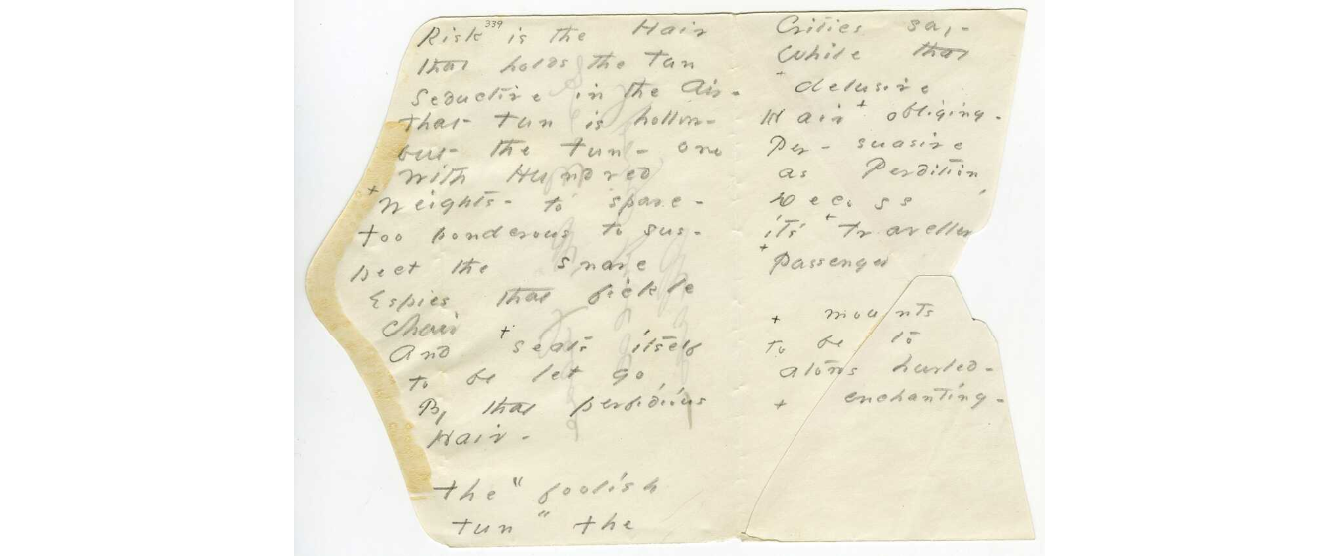 339
Risk is the Hair
that holds the Tun
Seductive in the Air -
that tun is hollow -
but the tun - one
with Hundred
+ Weights - to spare -
too ponderous to sus -
pect the snare
Espies that fickle
chair
And + seats itself
to be let go
By that perfidious
Hair -
the "foolish
tun" the
Critics say -
While that
+ delusive
Hair + obliging -
Per - suasive
as Perdition,
Decoys
its + Traveller
+ Passenger
+ mounts
to be to
atoms hurled -
+ enchanting -